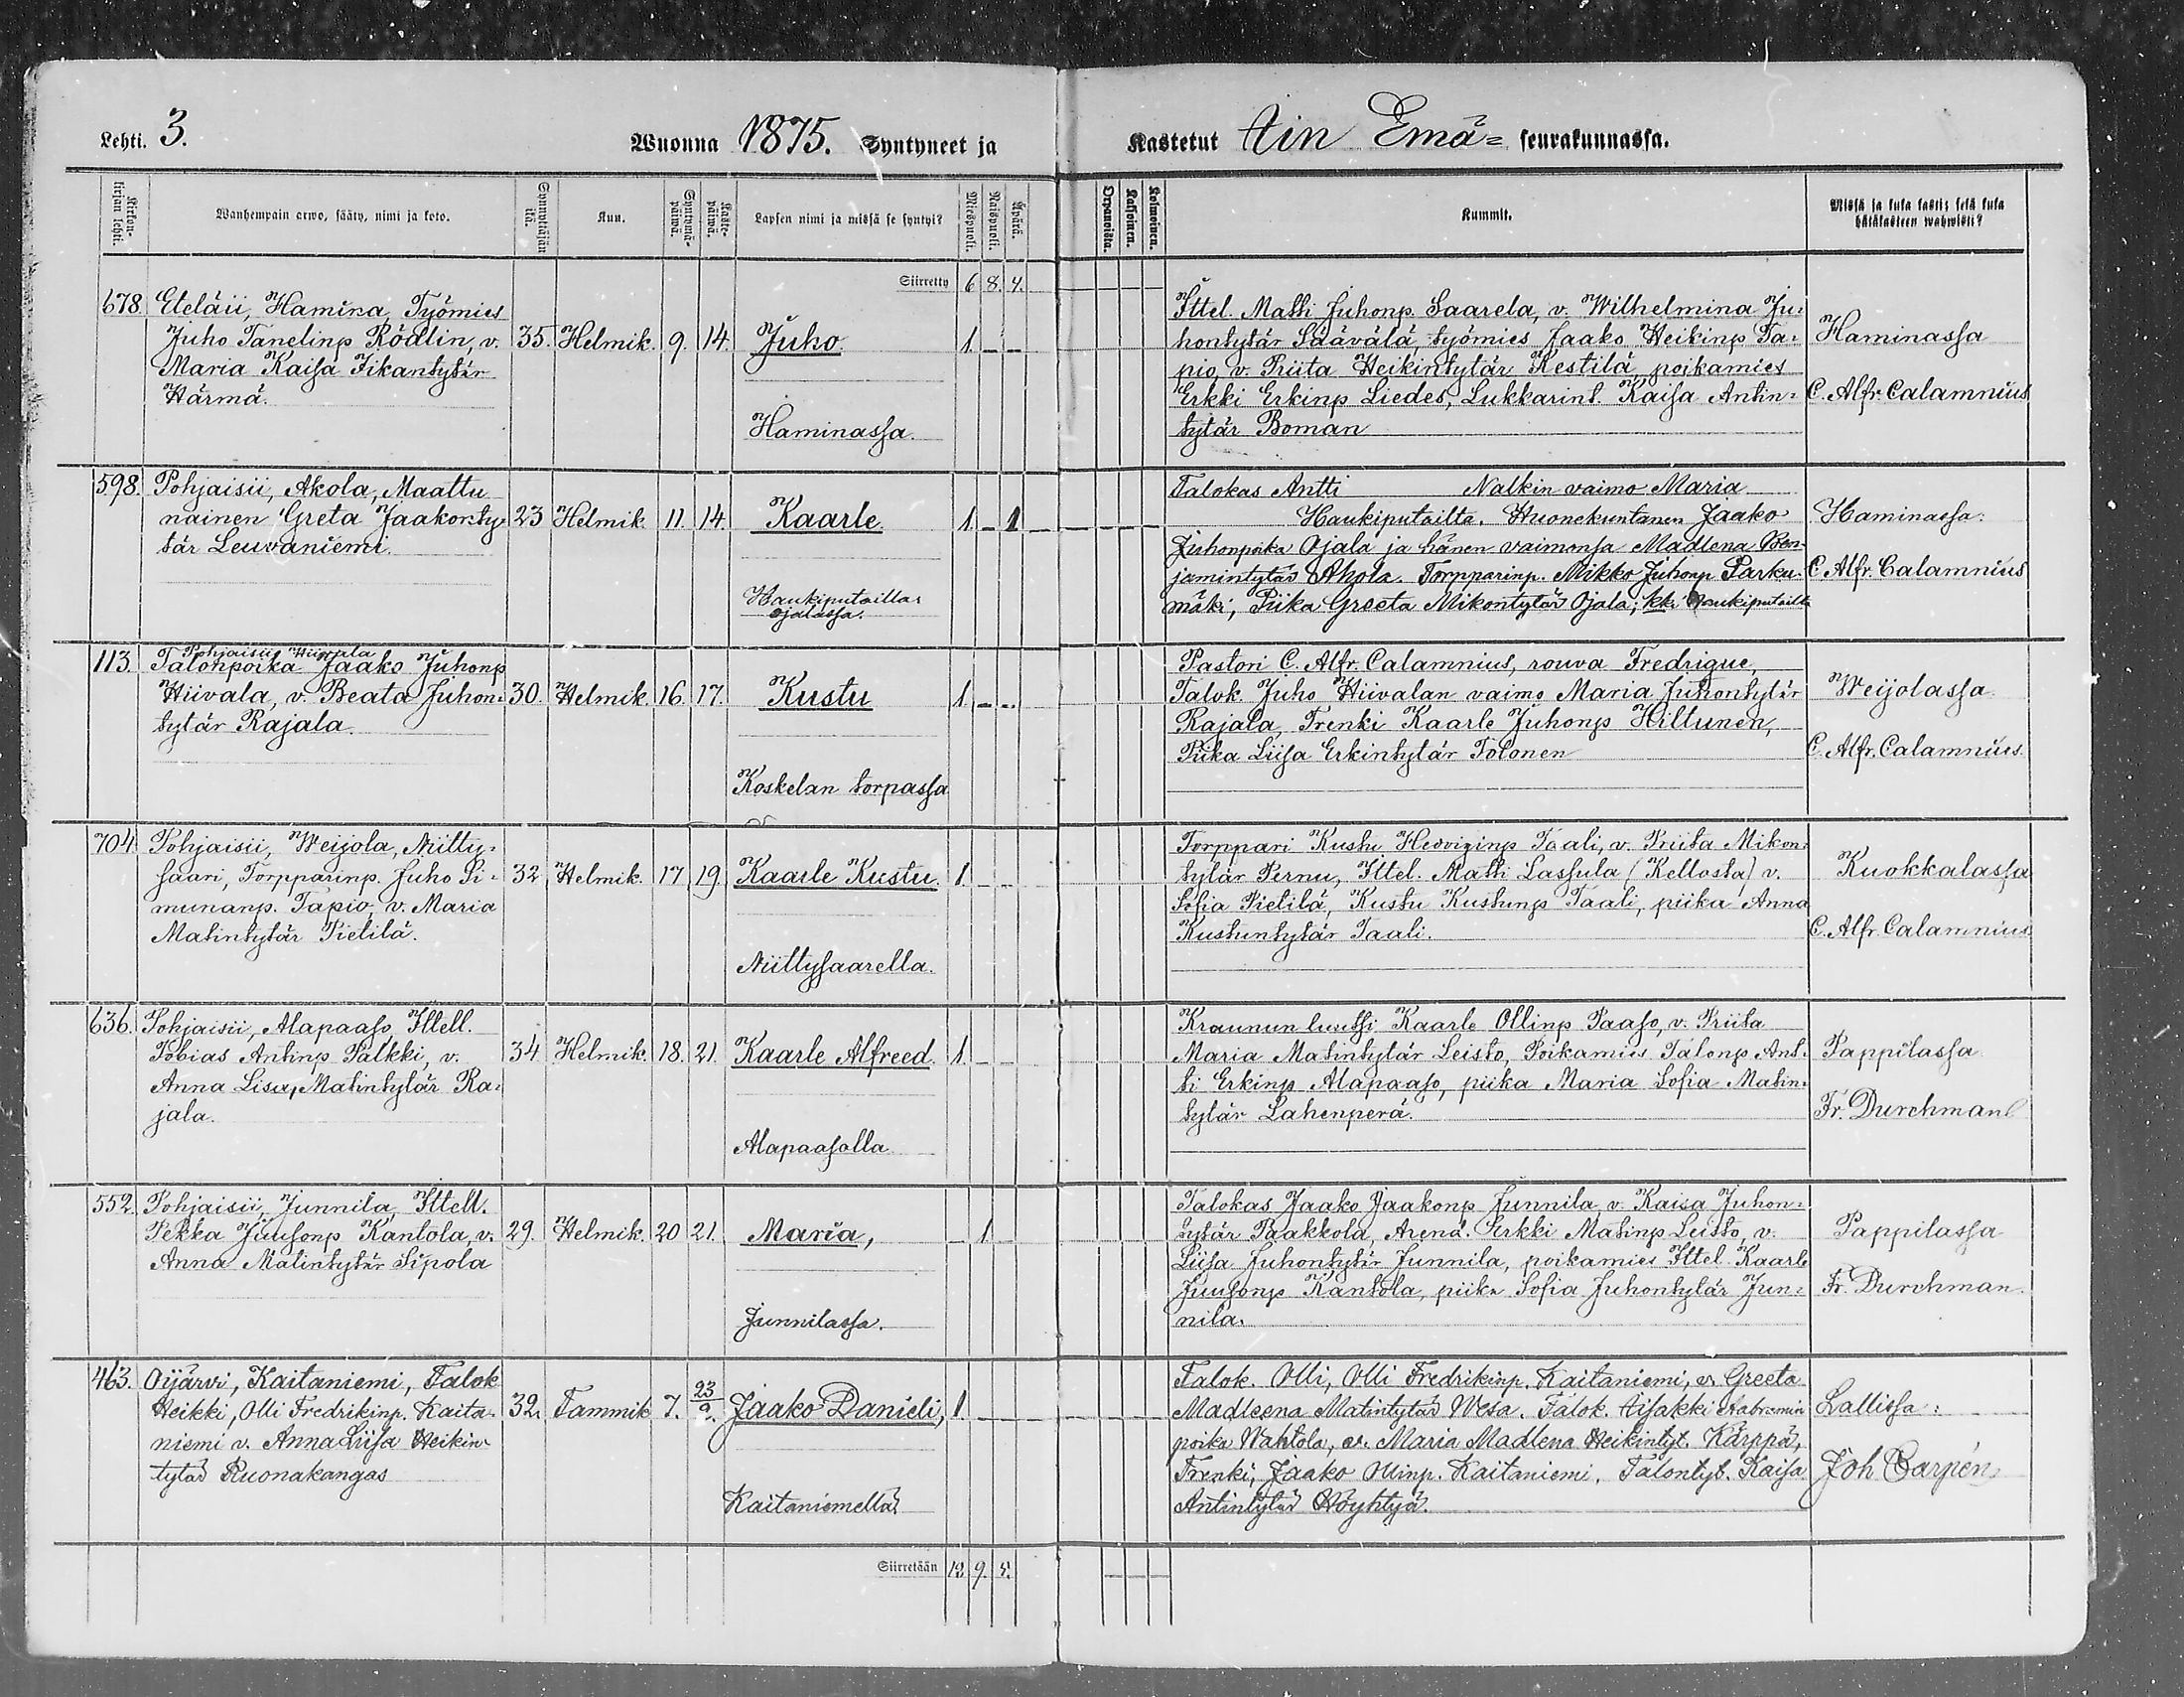 Lehti. 3. Wuonna 1875. Syntyneet ja
Kastetut Iin Emä= seurakunnassa.
Ristonkirjan lehti.
Wanhempain arwo, sääty, nimi ja koto.
Synnyttäjän ikä.
Kuu.
Syntymäpäiwä.
Kastepäiwä.
Lapsen nimi ja missä se syntyi?
Miespuoli.
Naispuoli.
Äpärä.
Orpanoista.
Kaksoinen.
Kolmoinen.
Kummit.
Missä ja kuka kasti; sekä kuka
hätäkasteen wahwisti?
Siirretty 6 8. 4.
678. Eteläii, Hamina, Työmies
Juho Tanelinp Rödlin, v.
Maria Kaisa Iikantytär
Härmä.
35. Helmik. 9. 14. Juho. 1. – –
Haminassa.
Ittel. Matti Juhonp. Saarela, v. Wilhelmina Ju=
hontytär Säävälä, työmies Jaako Heikinp Ta=
pio, v. Priita Heikintytär Kestilä, poikamies
Erkki Erkinp Liedes, Lukkarint. Kaisa Antin=
tytär Boman
Haminassa
C. Alfr. Calamnius
598. Pohjaisii, Akola, Maattu
nainen Greta Jaakonty=
tär Leuvaniemi.
23 Helmik. 11. 14. Kaarle. 1. – 1
Haukiputailla
Ojalassa.
Talokas Antti Nalkin vaimo Maria
Haukiputailta. Huonekuntanen Jaako
Juhonpoika Ojala ja hänen vaimonsa Madlena Ben=
jamintytär Akola. Torpparinp. Mikko Juhonp Parku=
mäki, Piika Greeta Mikontytär Ojala; kki Haukiputailta
Haminassa:
C. Alfr. Calamnius
113. Pohjaisii Hiivala
Talonpoika Jaako Juhonp
Hiivala, v. Beata Juhon=
tytär Rajala.
30. Helmik. 16. 17. Kustu 1. – –
Koskelan torpassa
Pastori C. Alfr. Calamnius, rouva Fredrique,
Talok. Juho Hiivalan vaimo Maria Juhontytär
Rajala, Trenki Kaarle Juhonp Hiltunen,
Piika Liisa Erkintytär Tolonen
Weijolassa.
C. Alfr. Calamnius.
704. Pohjaisii, Weijola, Niitty=
saari, Torpparinp. Juho Si=
munanp. Tapio, v. Maria
Matintytär Pietilä.
32 Helmik. 17 19 Kaarle Kustu. 1. – –
Niittysaarella.
Torppari Kustu Hedviginp Taali, v. Priita Mikon=
tytär Pernu, Ittel. Matti Lassula (Kellosta) v.
Sofia Pietilä, Kustu Kustunp Taali, piika Anna
Kustuntytär Taali.
Kuokkalassa
C. Alfr. Calamnius
636. Pohjaisii, Alapaaso, Ittell.
Tobias Antinp Palkki, v.
Anna Lisa, Matintytär Ra=
jala.
34. Helmik. 18. 21. Kaarle Alfreed. 1. – –
Alapaasolla
Kraunun luutsi Kaarle Ollinp Paaso, v. Priita
Maria Matintytär Leisto, Poikamies Talonp Ant=
ti Erkinp Alapaaso, piika Maria Sofia Matin=
tytär Lahenperä.
Pappilassa
Fr. Durchman
552. Pohjaisii, Junnila, Ittell.
Pekka Juusonp Kantola, v.
Anna Matintytär Sipola
29. Helmik. 20 21. Maria, – 1. –
Junnilassa.
Talokas Jaako Jaakonp Junnila, v. Kaisa Juhon=
tytär Paakkola, Arend. Perkki Matinp Leisto, v.
Liisa Juhontytär Junnila, poikamies Ittel. Kaarle
Juusonp Kantola, piika Sofia Juhontytär Jun=
nila.
Pappilassa
Fr. Durchman.
463. Oijärvi, Kaitaniemi, Talok
Heikki, Olli Fredrikinp. Kaita=
niemi v. Anna Liisa Heikin=
tytär Ruonakangas
32. Tammik 7. 23/2. Jaako Danieli, 1 – –
Kaitaniemellä
Talok. Olli, Olli Fredrikinp. Kaitaniemi, v. Greeta
Madleena Matintytär Wesa. Talok. Iisakki Aabramin
poika Wahtola, v. Maria Madlena Heikintyt. Kärppä,
Trenki, Jaako Ollinp. Kaitaniemi. Talontyt. Kaisa
Antintytär Höyhtyä.
Lallissa:
Joh Carpén
Siirretään 12 9. 5.